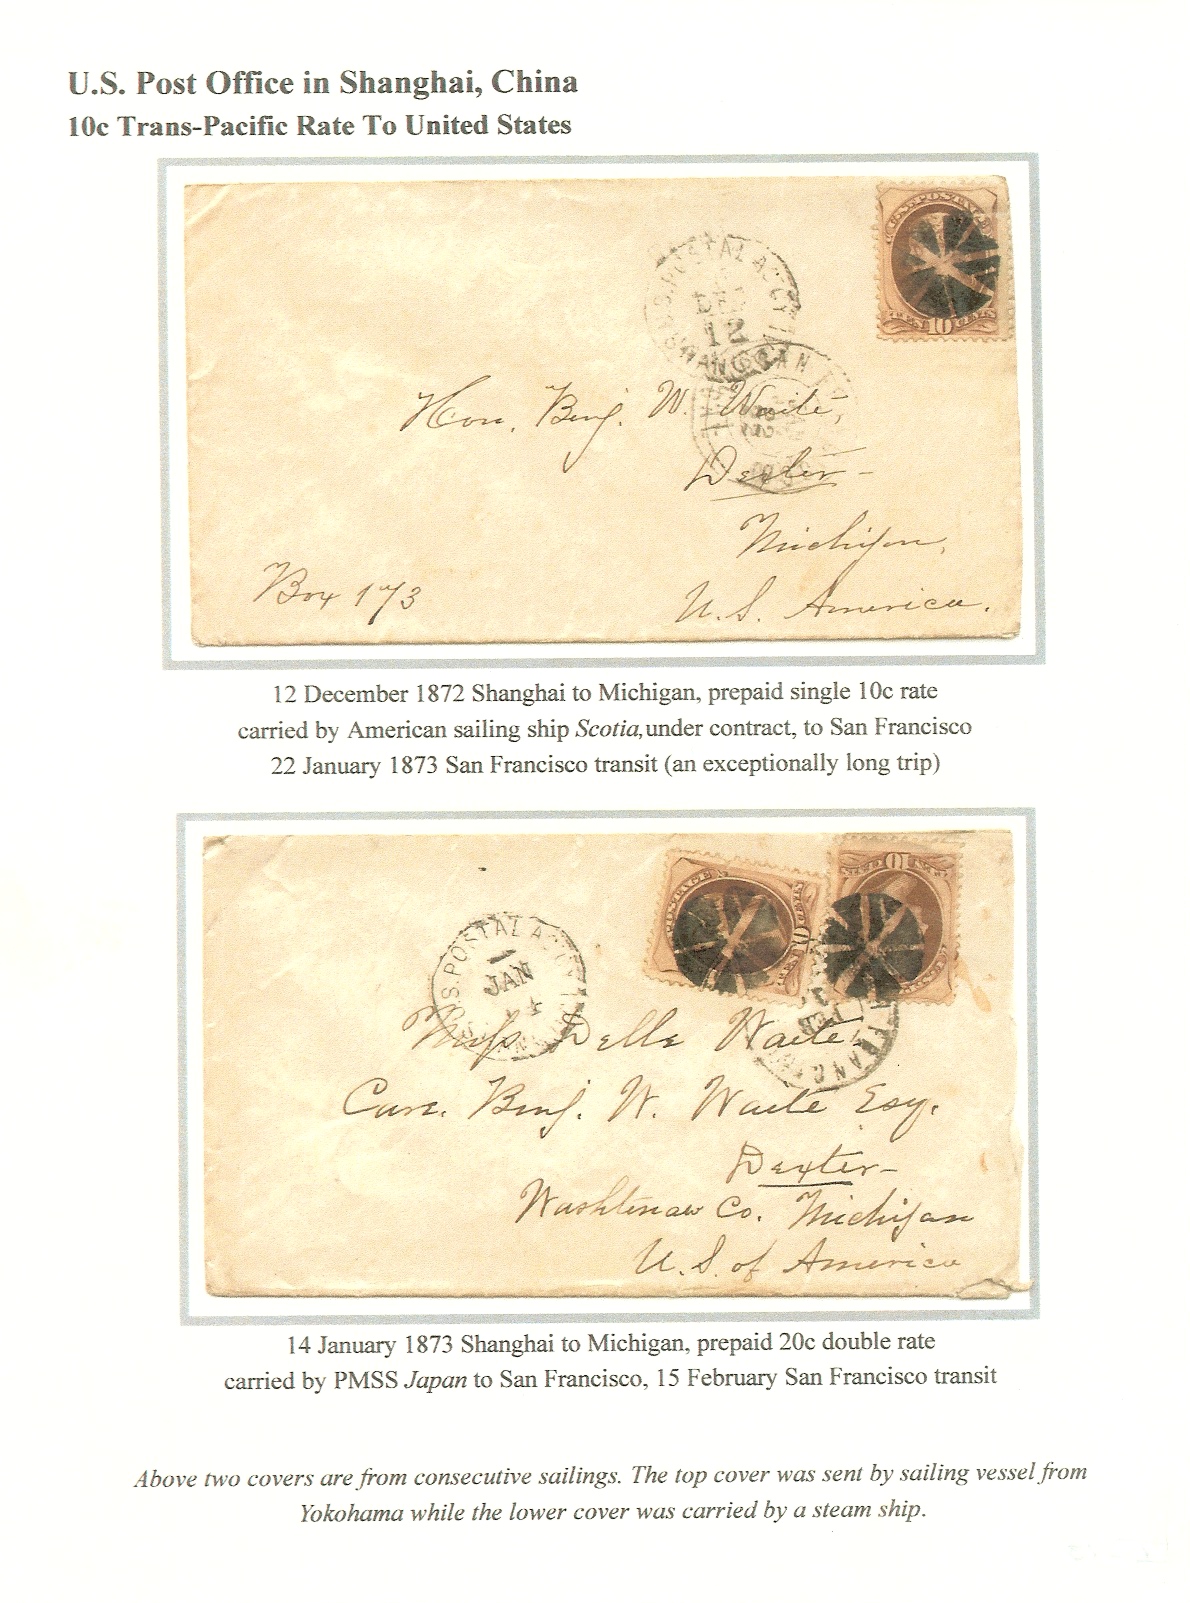 U.S. Post Office in Shanghai, China
10c Trans-Pacific Rate To United States
U.S. POSTAGE
TEN 10 CENTS
U.S. POSTAL AGCY
DEC
12
SHANGHAI
SAN
Hon. Benj. W. Waite,
Dexter
Michigan,
Box 173
U.S. America.
12 December 1872 Shanghai to Michigan, prepaid single 10c rate
carried by American sailing ship Scotia, under contract, to San Francisco
22 January 1873 San Francisco transit (an exceptionally long trip)
POSTAGE
TEN 10 CENTS
U.S. POSTAL AGCY
JAN
14
FEB
FRANCISCO
Miss Delle Waite,
Care. Benj. W. Waite Esq.
Dexter
Washtenaw Co. Michigan
U.S. of America
14 January 1873 Shanghai to Michigan, prepaid 20c double rate
carried by PMSS Japan to San Francisco, 15 February San Francisco transit
Above two covers are from consecutive sailings. The top cover was sent by sailing vessel from
Yokohama while the lower cover was carried by a steam ship.